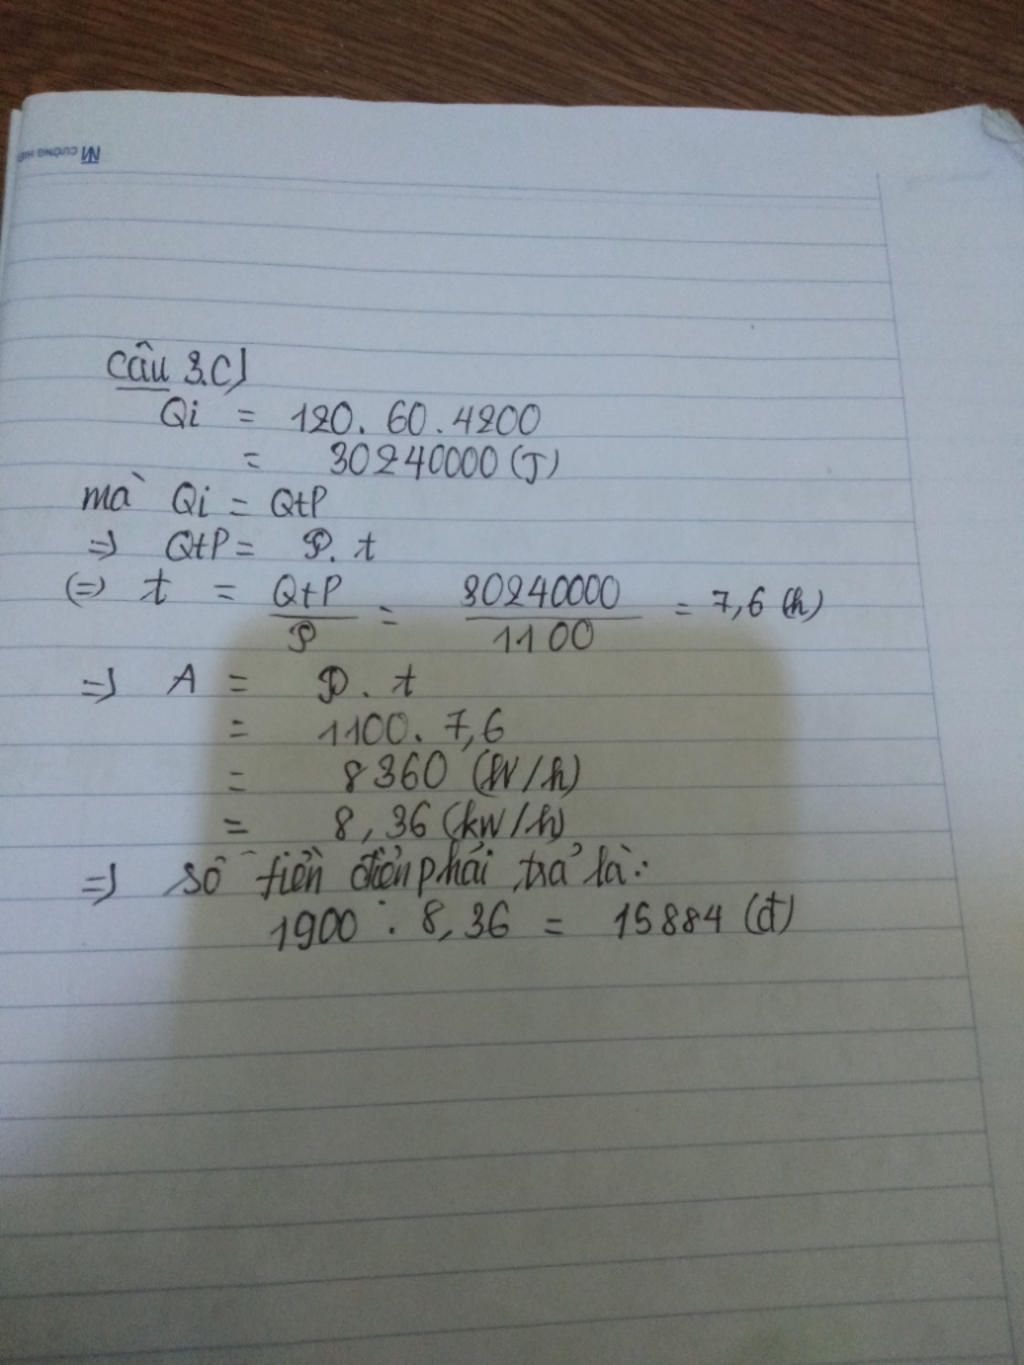 CƯỜNG
Câu 3.c)
Qi = 120. 60. 4200
= 30240000 (J)
mà Qi = QtP
=> QtP = P. t
(=) t = QtP / P = 30240000 / 1100 = 7,6 (h)
=> A = P. t
= 1100. 7,6
= 8360 (W/h)
= 8,36 (kW/h)
=> Số tiền điện phải trả là:
1900 : 8,36 = 15884 (đ)